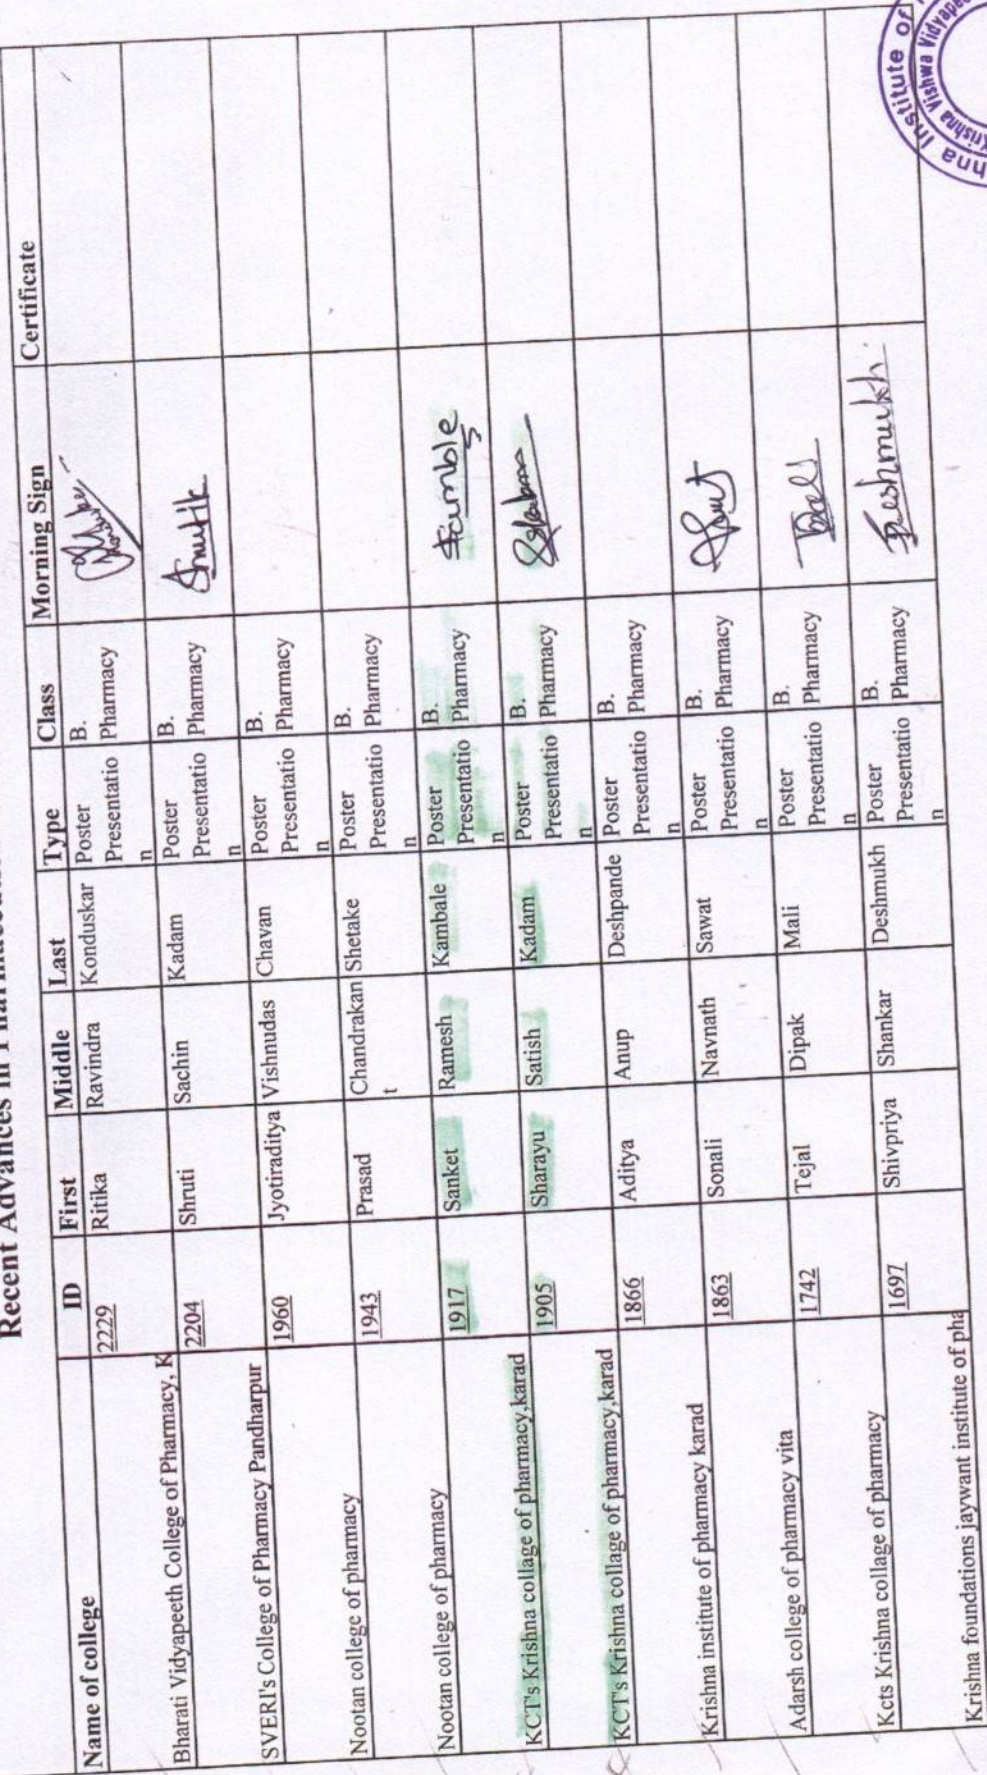 Recent Advances in
Name of college ID First Middle Last Type Class Morning Sign Certificate
Bharati Vidyapeeth College of Pharmacy, K 2229 Ritika Ravindra Konduskar Poster Presentatio n B. Pharmacy
SVERI's College of Pharmacy Pandharpur 2204 Shruti Sachin Kadam Poster Presentatio n B. Pharmacy
Nootan college of pharmacy 1960 Jyotiraditya Vishnudas Chavan Poster Presentatio n B. Pharmacy
Nootan college of pharmacy 1943 Prasad Chandrakan t Shetake Poster Presentatio n B. Pharmacy
KCT's Krishna collage of pharmacy,karad 1917 Sanket Ramesh Kambale Poster Presentatio n B. Pharmacy
KCT's Krishna collage of pharmacy,karad 1905 Sharayu Satish Kadam Poster Presentatio n B. Pharmacy
Krishna institute of pharmacy karad 1866 Aditya Anup Deshpande Poster Presentatio n B. Pharmacy
Adarsh college of pharmacy vita 1863 Sonali Navnath Sawat Poster Presentatio n B. Pharmacy
Kcts Krishna collage of pharmacy 1742 Tejal Dipak Mali Poster Presentatio n B. Pharmacy
Krishna foundations jaywant institute of pha 1697 Shivpriya Shankar Deshmukh Poster Presentatio n B. Pharmacy Deshmukh
Institute of
Krishna Vishwa